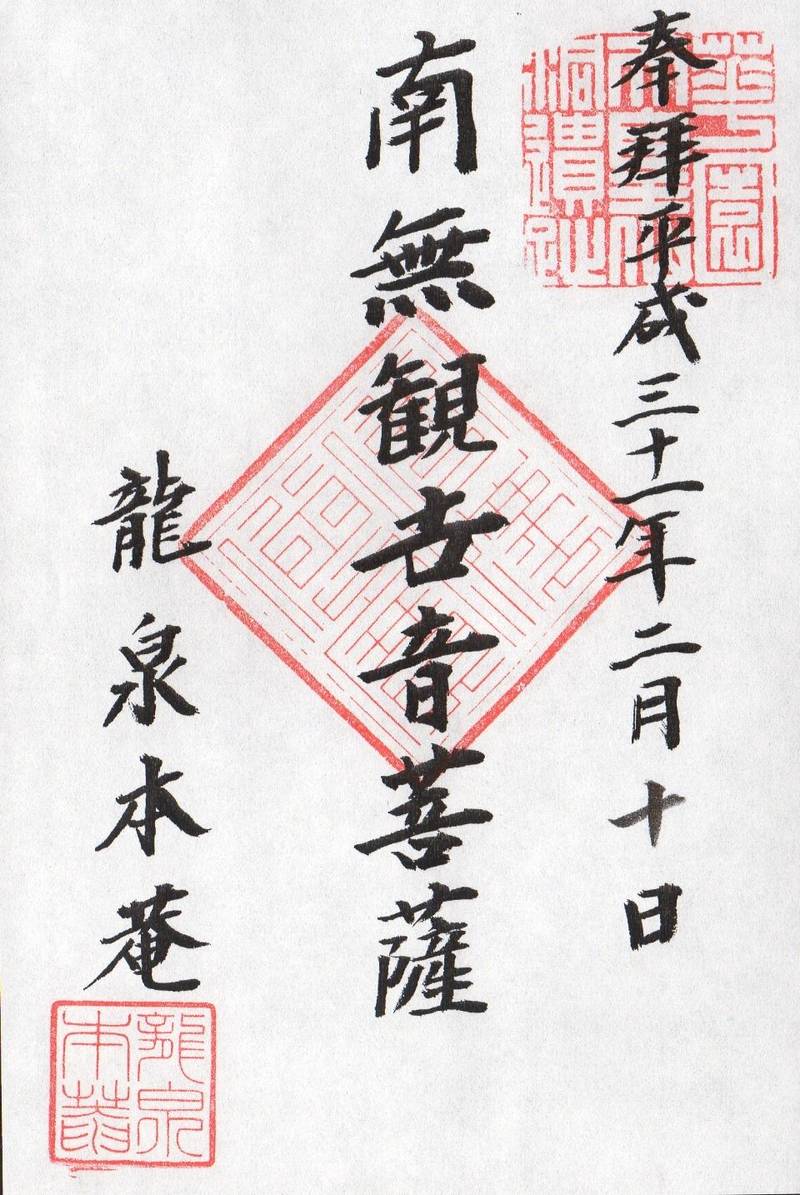 奉拜平成三十一年二月十日
南無観世音菩薩
龍泉本菴
龍泉
本菴